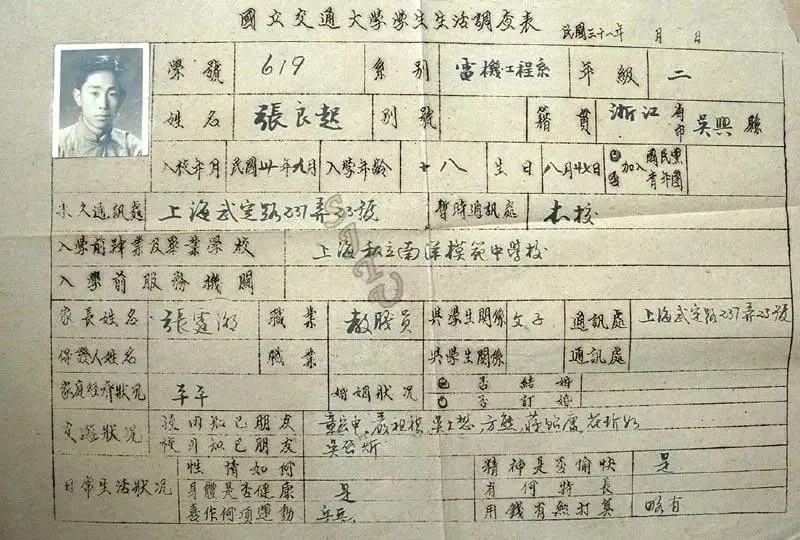 國立交通大學學生生活調查表 民國三十一年 月 日
學號 619 系別 電機工程系 年級 二
姓名 張良起 別號 籍貫 浙江 省市 吳興 縣
入校年月 民國卅年九月 入學年齡 十八 生日 八月廿七日 已否 加入 國民黨 青年團
永久通訊處 上海武定路237弄23號 暫時通訊處 本校
入學前肄業及畢業學校 上海私立南洋模範中學校
入學前服務機關
家長姓名 張 職業 教職員 與學生關係 父子 通訊處 上海武定路237弄23號
保證人姓名 職業 與學生關係 通訊處
家庭經濟狀況 平平 婚姻狀況 已否結婚
已否訂婚
交遊狀況 校內知己朋友
校外知己朋友 吳
日常生活狀況 性情如何 精神是否愉快 是
身體是否健康 是 有何特長
喜作何項運動 乒乓 用錢有無打算 略有